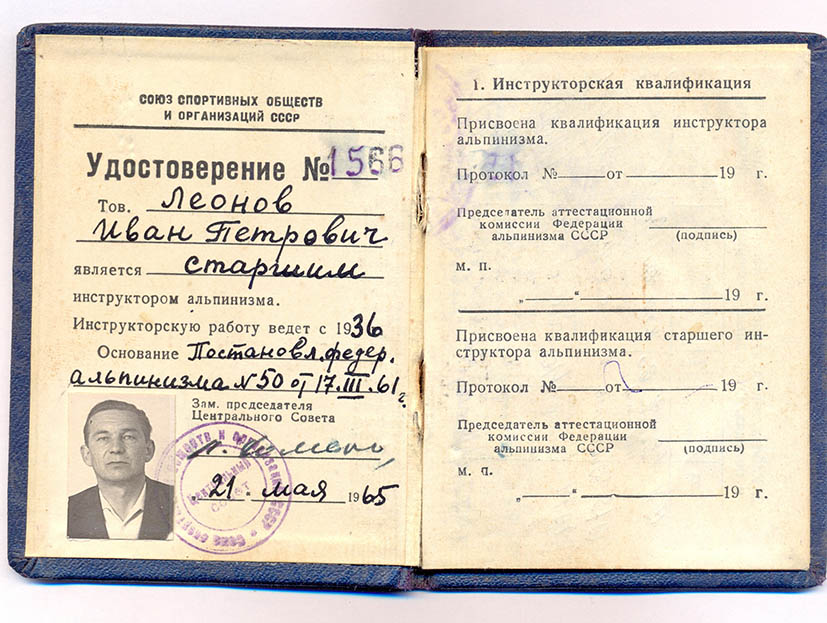 СОЮЗ СПОРТИВНЫХ ОБЩЕСТВ
И ОРГАНИЗАЦИЙ СССР
Удостоверение № 1566
Тов. Леонов
Иван Петрович
является старшим
инструктором альпинизма.
Инструкторскую работу ведет с 1936
Основание Постановл. федер.
альпинизма N 50 от 17.III.61 г.
Зам. председателя
Центрального Совета
21 мая 1965
1. Инструкторская квалификация
Присвоена квалификация инструктора
альпинизма.
Протокол № от 19 г.
Председатель аттестационной
комиссии Федерации
альпинизма СССР
(подпись)
м. п.
„ “ 19 г.
Присвоена квалификация старшего ин-
структора альпинизма.
Протокол № от 19 г.
Председатель аттестационной
комиссии Федерации
альпинизма СССР
(подпись)
м. п.
„ “ 19 г.